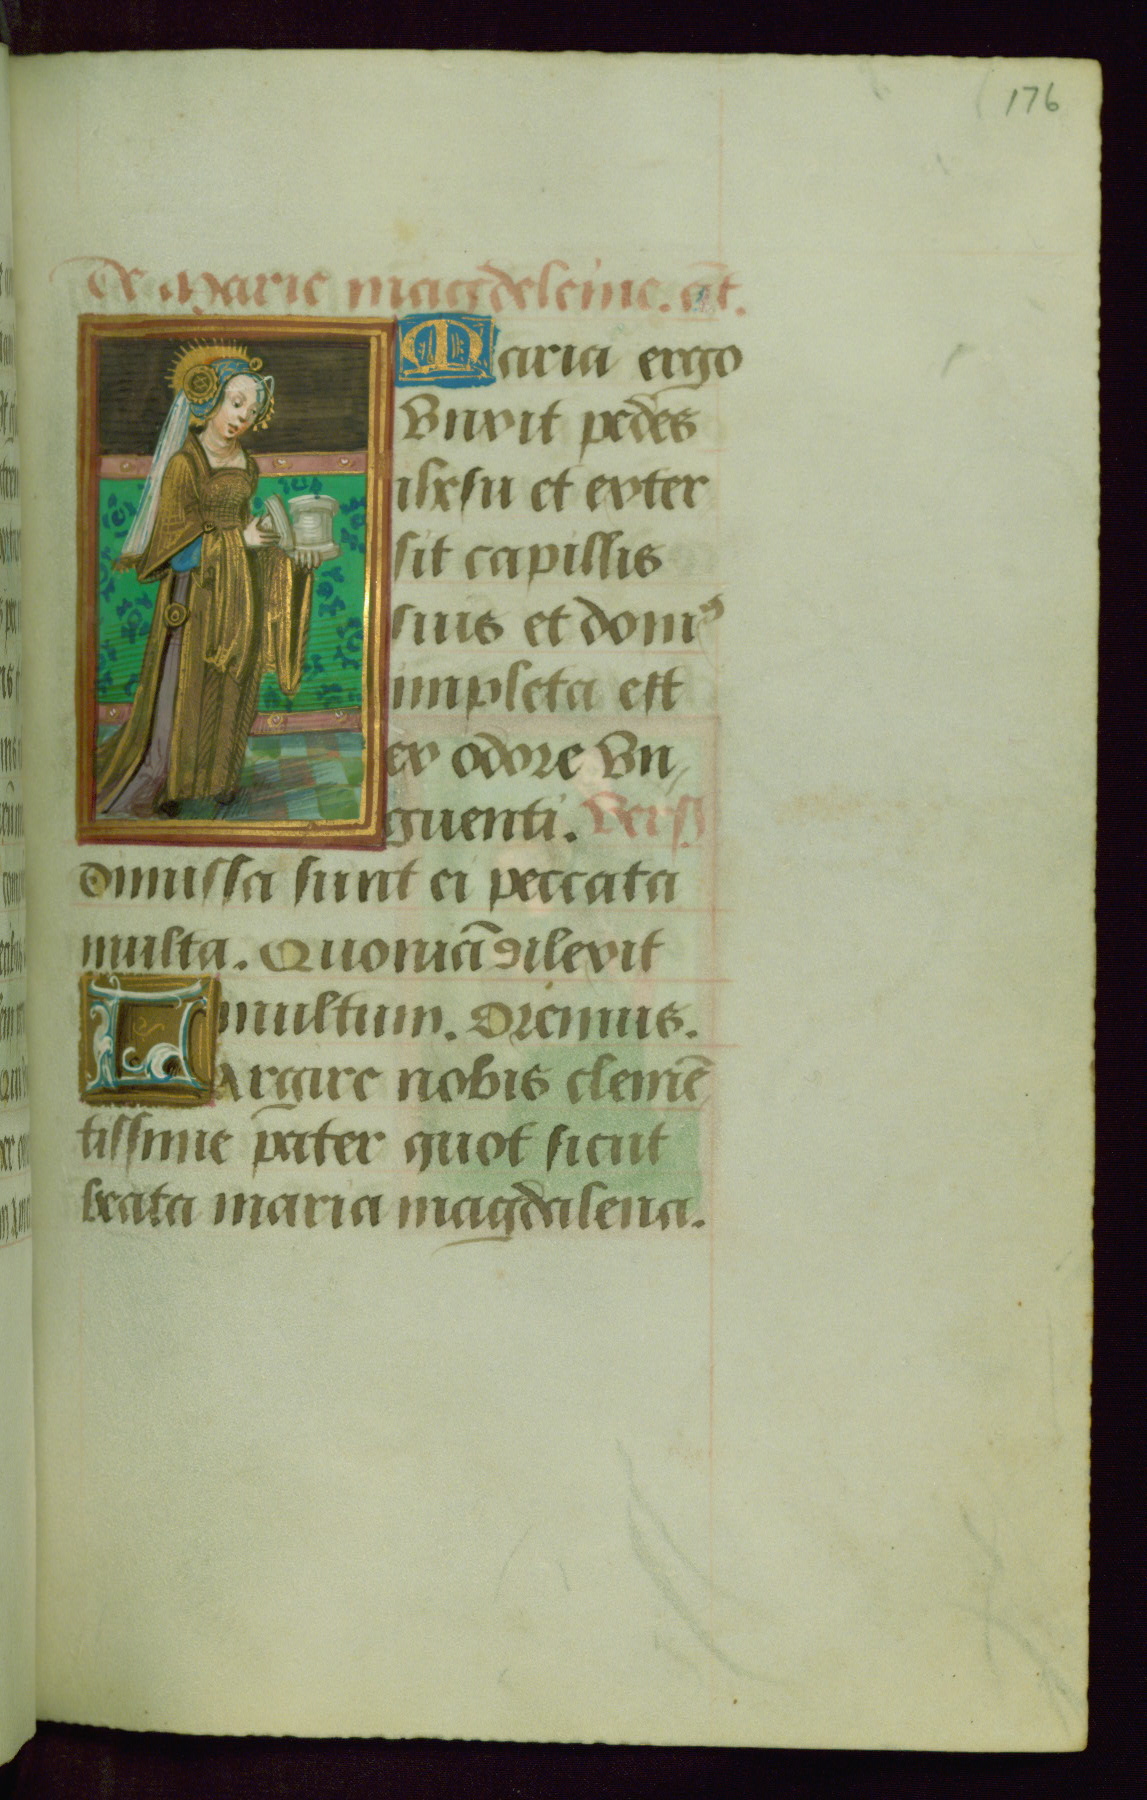 176
De Marie magdeleine. ãt.
Maria ergo
vnxit pedes
ihesu et exter
sit capillis
suis et domꝰ
impleta est
ex odore vn
guenti. Vers9
dimissa sunt ei peccata
multa. Quoniã dilexit
multum. Oremus.
Largire nobis clemẽ
tissime pater quot sicut
beata maria magdalena.